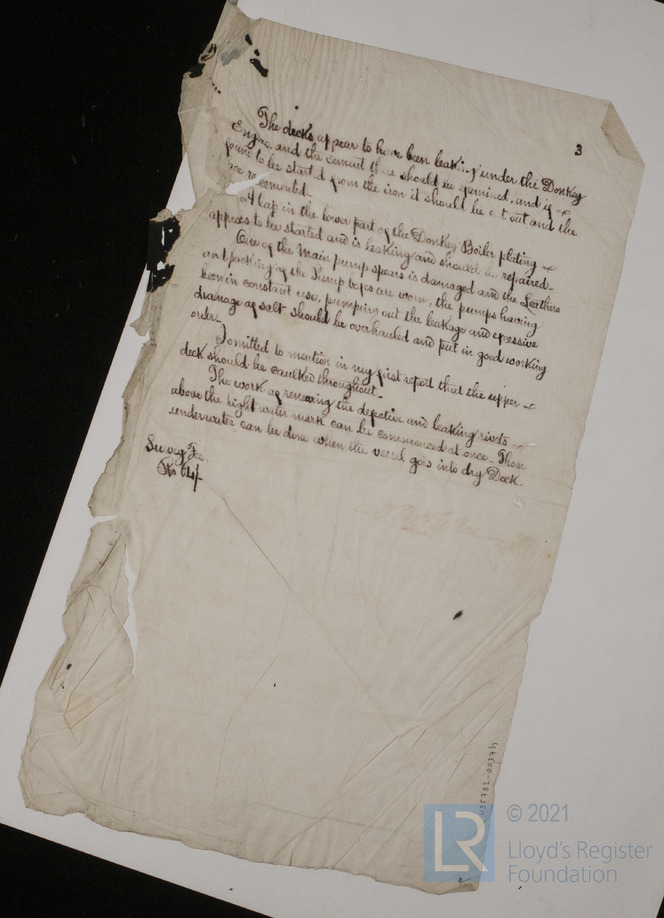 3
The decks appear to have been leaking under the Donkey
Engine, and the cement there should be examined, and if
found to be started from the iron it should be cut out and the
recemented.
A lap in the lower part of the Donkey Boiler plating
appears to be started and is leaking and should be repaired.
One of the Main pump spears is damaged and the Leathers
and packing of the Pump are worn, the pumps having
been in constant use, pumping out the leakage and excessive
drainage of salt should be overhauled and put in good working
order.
I omitted to mention in my first report that the upper
deck should be caulked throughout.
The work of renewing the defective and leaking rivets
above the light water mark can be commenced at once. Those
underwater can be done when the vessel goes into dry Dock.
Survey Fee.
LR
© 2021
Lloyd's Register
Foundation